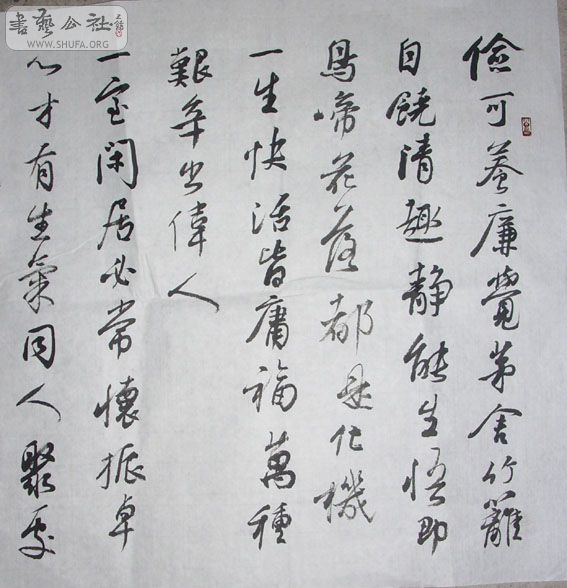 書藝公社
WWW.SHUFA.ORG
儉可養廉覺茅舍竹籬
自饒清趣静能生悟即
鳥啼花落都是化機
一生快活皆庸福萬種
艱辛出偉人
一室閑居必常懷振卓
心才有生氣同人聚處